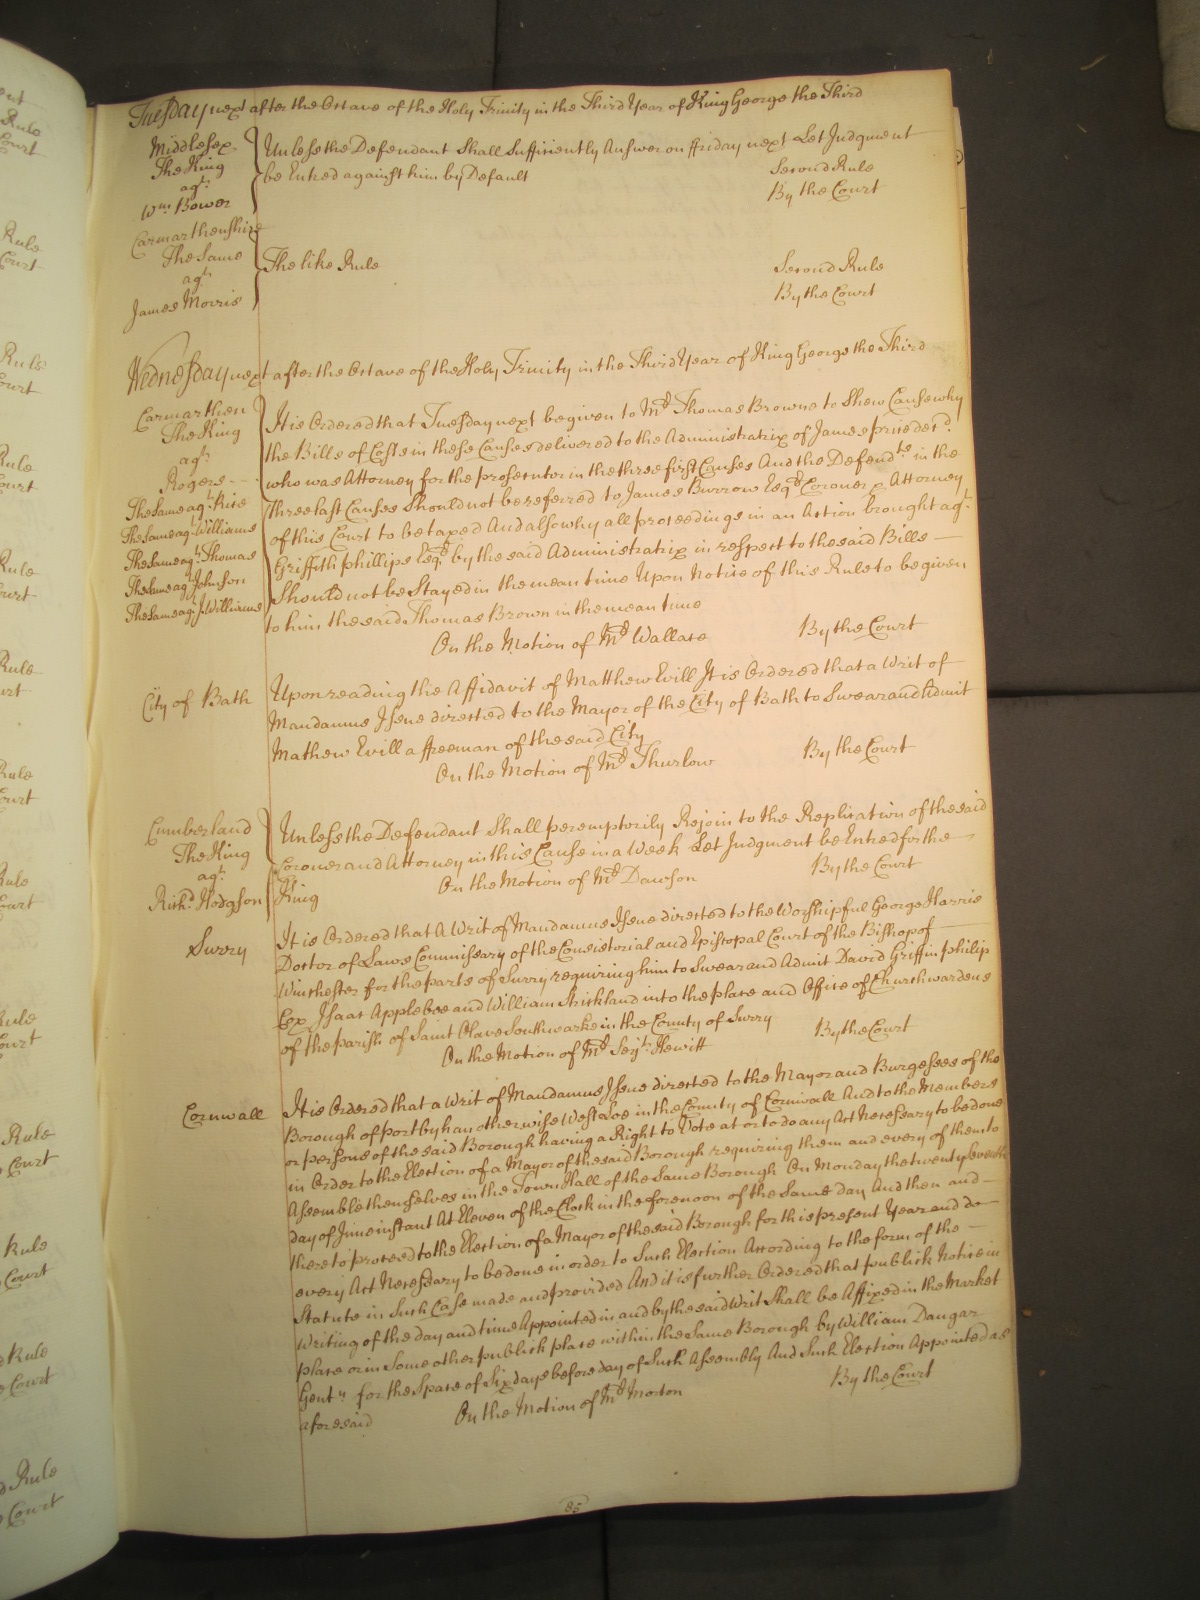 Tuesday next after the Octave of the Holy Trinity in the Third Year of King George the Third
Middlesex
The King
agt.
Wm. Bower
Unless the Defendant Shall Sufficiently Answer on ffriday next Let Judgment
be Entred against him by Default
Second Rule
By the Court
Carmarthenshire
The Same
agt.
James Morris
The like Rule
Second Rule
By the Court
Wednesday next after the Octave of the Holy Trinity in the Third Year of King George the Third
Carmarthen
The King
agt.
Rogers
The Same agt. Rice
The Same agt. Williams
The Same agt. Thomas
The Same agt. Johnson
The Same agt. J. Williams
It is Ordered that Tuesday next be given to Mr. Thomas Browne to Shew Cause why
the Bills of Costs in these Causes delivered to the Administratrix of James price decd.
who was Attorney for the prosecutor in the three first Causes And the Defendts. in the
three last Causes Should not be referred to James Burrow Esqr. Coroner & Attorney
of this Court to be taxed And also why all proceedings in an Action brought agt.
Griffith phillips Esqr. by the said Administratrix in respect to the said Bills
Should not be Stayed in the mean time Upon Notice of this Rule to be given
to him the said Thomas Brown in the mean time
On the Motion of Mr. Wallace
By the Court
City of Bath
Upon reading the Affidavit of Matthew Evill It is Ordered that a Writ of
Mandamus Issue directed to the Mayor of the City of Bath to Swear and Admit
Mathew Evill a ffreeman of the said City
On the Motion of Mr. Thurlow
By the Court
Cumberland
The King
agt.
Richd. Hodgson
Unless the Defendant Shall peremptorily Rejoin to the Replication of the said
Coroner and Attorney in this Cause in a Week Let Judgment be Entred for the
King
On the Motion of Mr. Dawson
By the Court
Surry
It is Ordered that A Writ of Mandamus Issue directed to the Worshipful George Harris
Doctor of Laws Commissary of the Consistorial and Episcopal Court of the Bishop of
Winchester for the parts of Surry requiring him to Swear and Admit David Griffin philip
Cox Isaac Applebee and William Strickland into the place and Office of Churchwardens
of the parish of Saint Olave Southwarke in the County of Surry
On the Motion of Mr. Serjt. Hewitt
By the Court
Cornwall
It is Ordered that a Writ of Mandamus Issue directed to the Mayor and Burgesses of the
Borough of portbyhan otherwise West Loe in the County of Cornwall And to the Members
or persons of the said Borough having a Right to Vote at or to do any Act Necessary to be done
in Order to the Election of a Mayor of the said Borough requiring them and every of them to
Assemble themselves in the Town Hall of the Same Borough On Monday the twenty seventh
day of June instant At Eleven of the Clock in the forenoon of the Same day And then and
there to proceed to the Election of a Mayor of the said Borough for this present Year and do
every Act Necessary to be done in order to Such Election According to the form of the
Statute in Such Case made and provided And it is further Ordered that publick Notice in
Writing of the day and time Appointed in and by the said Writ Shall be Affixed in the Market
place or in Some other publick place within the Same Borough by William Dangar
Gentn. for the Space of Six days before day of Such Assembly And Such Election Appointed as
aforesaid
On the Motion of Mr. Morton
By the Court
85